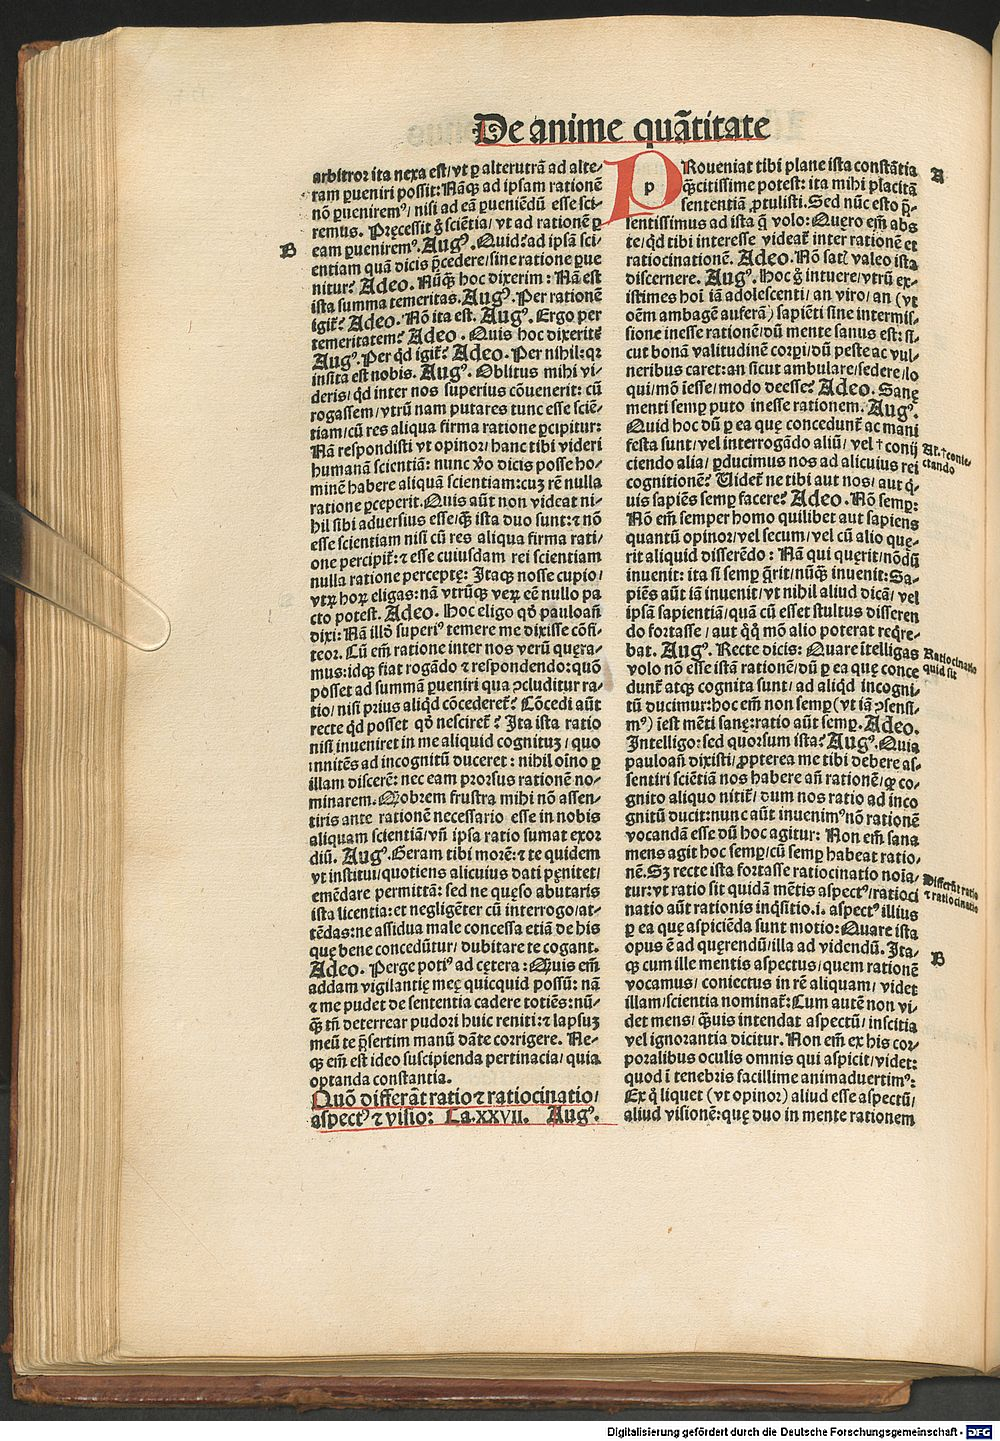 De anime quãtitate
arbitror ita nexa est/vt ꝑ alterutrã ad alte-
ram ꝑueniri possit: Nãq̃ ad ipsam rationẽ
nõ ꝑuenirem⁹/nisi ad eã ꝑueniẽdũ esse sci-
remus. Pręcessit g̃ sciẽtia/vt ad rationẽ ꝑ
B
eam ꝑuenirem⁹. Aug⁹. Quid? ad ipsã sci-
entiam quã dicis p̃cedere/sine ratione ꝑue
nitur? Adeo. Nũq̃ hoc dixerim: Nã est
ista summa temeritas. Aug⁹. Per rationẽ
igit̃? Adeo. Nõ ita est. Aug⁹. Ergo per
temeritatem? Adeo. Quis hoc dixerit?
Aug⁹. Per qd̓ igit̃? Adeo. Per nihil: qꝛ
insita est nobis. Aug⁹. Oblitus mihi vi-
deris/qd̓ inter nos superius cõuenerit: cũ
rogassem/vtrũ nam putares tunc esse sciẽ-
tiam/cũ res aliqua firma ratione ꝑcipitur:
Nã respondisti vt opinor/hanc tibi videri
humanã scientiã: nunc v̓o dicis posse ho-
minẽ habere aliquã scientiam: cuꝫ rẽ nulla
ratione ꝑceperit. Quis aũt non videat ni-
hil sibi adversius esse/q̃ ista duo sunt: ⁊ nõ
esse scientiam nisi cũ res aliqua firma rati-
one percipit̃: ⁊ esse cuiusdam rei scientiam
nulla ratione perceptę: Itaqꝫ nosse cupio/
vtꝝ hoꝝ eligas: nã vtrũqꝫ veꝝ eẽ nullo pa
cto potest. Adeo. Hoc eligo qd̓ pauloañ
dixi: Nã illd̓ superi⁹ temere me dixisse cõfi-
teor. Cũ em̃ ratione inter nos verũ quęra-
mus: idqꝫ fiat rogãdo ⁊ respondendo: quõ
posset ad summã ꝑueniri qua ↄcluditur ra-
tio/nisi prius aliqd̓ cõcederet̃? Cõcedi aũt
recte qd̓ posset qd̓ nesciret̃? Ita ista ratio
nisi inveniret in me aliquid cognituꝫ/quo
innitẽs ad incognitũ duceret: nihil oĩno ꝑ
illam discerẽ: nec eam prorsus rationẽ no-
minarem. Qꝫobrem frustra mihi nõ assen-
tiris ante rationẽ necessario esse in nobis
aliquam scientiã/vñ ipsa ratio sumat exor
diũ. Aug⁹. Geram tibi morẽ: ⁊ te quidem
vt institui/quotiens alicuius dati pęnitet/
emẽdare permittã: sed ne quęso abutaris
ista licentia: et negligẽter cũ interrogo/at-
tẽdas: ne assidua male concessa etiã de his
quę bene concedũtur/dubitare te cogant.
Adeo. Perge poti⁹ ad cętera: Quis em̃
addam vigilantię meę quicquid possũ: nã
⁊ me pudet de sententia cadere totiẽs: nũ-
q̃ tñ deterrear pudori huic reniti: ⁊ lapsuꝫ
meũ te p̃sertim manũ dãte corrigere. Ne-
qꝫ em̃ est ideo suscipienda pertinacia/quia
optanda constantia.
Quõ differãt ratio ⁊ ratiocinatio/
aspect⁹ ⁊ visio: Ca.XXVII. Aug⁹.
PRoueniat tibi plane ista constãtia
A
q̃citissime potest: ita mihi placitã
sententiã ꝓtulisti. Sed nũc esto p̃-
sentissimus ad ista q̃ volo: Quęro em̃ abs
te/qd̓ tibi interesse videat̃ inter rationẽ et
ratiocinationẽ. Adeo. Nõ sat⸝ valeo ista
discernere. Aug⁹. Hoc g̃ intuere/vtrũ ex-
istimes hoĩ iã adolescenti/an viro/an (vt
oẽm ambagẽ auferã) sapiẽti sine intermis-
sione inesse rationẽ/dũ mente sanus est: si-
cut bonã valitudinẽ corpi/dũ peste ac vul-
neribus caret: an sicut ambulare/sedere/lo
qui/mõ iesse/modo deesse? Adeo. Sanę
menti semꝑ puto inesse rationem. Aug⁹.
Quid hoc dũ ꝑ ea quę concedunt̃ ac mani
festa sunt/vel interrogãdo aliũ/vel †conij
Al.†conie-
ctando
ciendo alia/ꝑducimus nos ad alicuius rei
cognitionẽ? Uidet̃ ne tibi aut nos/aut q̃-
uis sapiẽs semꝑ facere? Adeo. Nõ semꝑ:
Nõ em̃ semper homo quilibet aut sapiens
quantũ opinor/vel secum/vel cũ alio quę-
rit aliquid disserẽdo: Nã qui quęrit/nõdũ
inuenit: ita si semꝑ q̃rit/nũq̃ inuenit: Sa-
piẽs aũt iã inuenit/vt nihil aliud dicã/vel
ipsã sapientiã/quã cũ esset stultus disseren
do fortasse/aut q̃q̃ mõ alio poterat reqͥre-
bat. Aug⁹. Recte dicis: Quare ĩtelligas
Ratiocinatio
quid sit
volo nõ esse istã rationẽ/dũ ꝑ ea quę conce
dunt̃ atqꝫ cognita sunt/ad aliqd̓ incogni-
tũ ducimur: hoc em̃ non semꝑ (vt iã ↄsensi-
m⁹) iest mẽti sanę: ratio aũt semꝑ. Adeo.
Intelligo: sed quorsum ista? Aug⁹. Quia
pauloañ dixisti/ꝓpterea me tibi debere as-
sentiri sciẽtiã nos habere añ rationẽ/qꝫ co-
gnito aliquo nitit̃/dum nos ratio ad inco
gnitũ ducit: nunc aũt inuenim⁹ nõ rationẽ
vocandã esse dũ hoc agitur: Non em̃ sana
mens agit hoc semꝑ/cũ semꝑ habeat ratio-
nẽ. Sꝫ recte ista fortasse ratiocinatio noĩa-
Differũt ratio
⁊ ratiocinatio
tur: vt ratio sit quidã mẽtis aspect⁹/ratioci
natio aũt rationis inqͥsitio.i. aspect⁹ illius
ꝑ ea quę aspiciẽda sunt motio: Quare ista
opus ẽ ad quęrendũ/illa ad videndũ. Ita-
B
qꝫ cum ille mentis aspectus/quem rationẽ
vocamus/coniectus in rẽ aliquam/videt
illam/scientia nominat̃: Cum autẽ non vi-
det mens/q̃uis intendat aspectũ/inscitia
vel ignorantia dicitur. Non em̃ ex his cor-
poralibus oculis omnis qui aspicit/videt:
quod ĩ tenebris facillime animaduertim⁹:
Ex q̃ liquet (vt opinor) aliud esse aspectũ/
aliud visionẽ: quę duo in mente rationem
Digitalisierung gefördert durch die Deutsche Forschungsgemeinschaft - DFG